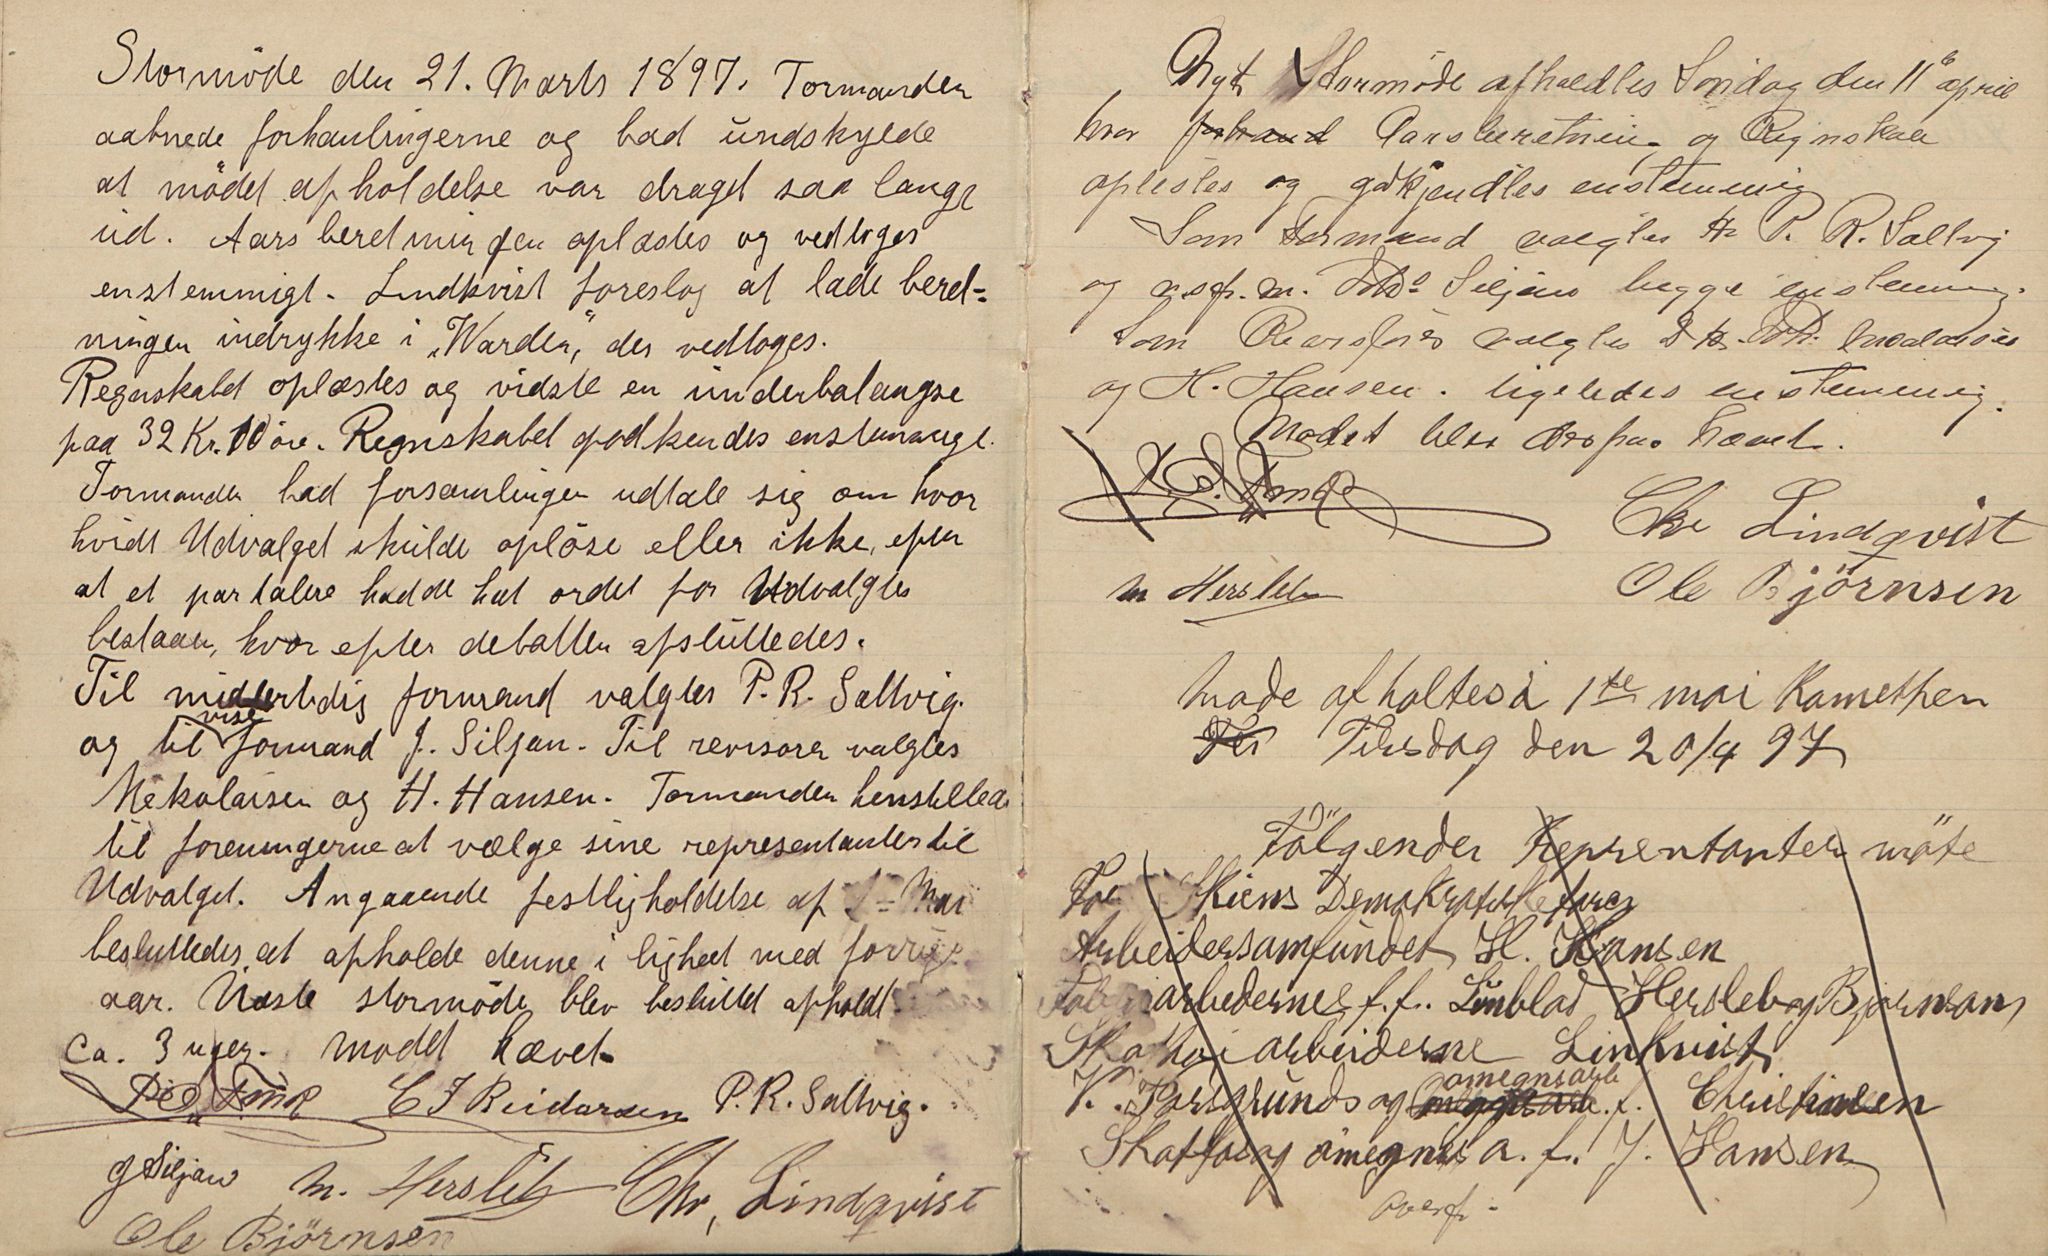 Stormöde den 21. Marts 1897. Formanden
aabnede forhanlingerne og bad undskylde
at mödet afholdelse var draget saa lange
ud. Aarsberetningen oplæstes og vedtoges
enstemmigt. Lindkvist foreslog at lade beret-
ningen indrykke i "Warden", des vedtoges.
Regnskabet oplæstes og vidste en underbalangse
paa 32 Kr. 10 öre. Regnskabet godkendes enstemmigt.
Formanden bad forsamlingen udtale sig om hvor
hvidt Udvalget skulde oplöse eller ikke, efter
at et par talere hadde hat ordet for Udvalgtes
bestaan, hvor efter debatten afsluttedes.
Til midlertidig formand valgtes P. R. Saltvig.
og til vise formand J. Siljan. Til revisorer valgtes
Nekolaisen og H. Hansen. Formanden henstillede
til foreningerne at vælge sine representanter til
Udvalget. Angaaende festligholdelse af 1- Mai
besluttedes at afholde denne i lighed med forrige
aar. Næste stormöde blev besluttet afholdt
Ca. 3 uger. modet hævet
C J Reidarsen P. R. Saltvig.
J Siljan M. Hersleb Chr. Lindqvist
Ole Björnsen
Nyt Stormöde afholdtes Söndag den 11te april
hvor Aarsberetning og Regnskab
oplestes og godkjendtes enstemmig
Som Formand valgtes Hr P. R. Saltvig
og Siljan begge enstemmig.
Som Revisorer valgtes
og H. Hansen. ligeledes enstemmig.
Modet blev hævet.
Chr Lindqvist
M Hersleb
Ole Björnsen
Möde afholtes i 1ste mai Kometheen
Tirsdag den 20/4 97
Fölgender Reprentanter möte
For Skiens Demokratiske foren
Arbeidersamfundet H. Hansen
arbedernes f.f. Linblad Hersleb og Bjornsen
arbeiderne Linkvist
V. Porsgrunds og omegns arb. f. Christinsen
Skotfos og omegns a. f. J. Hansen